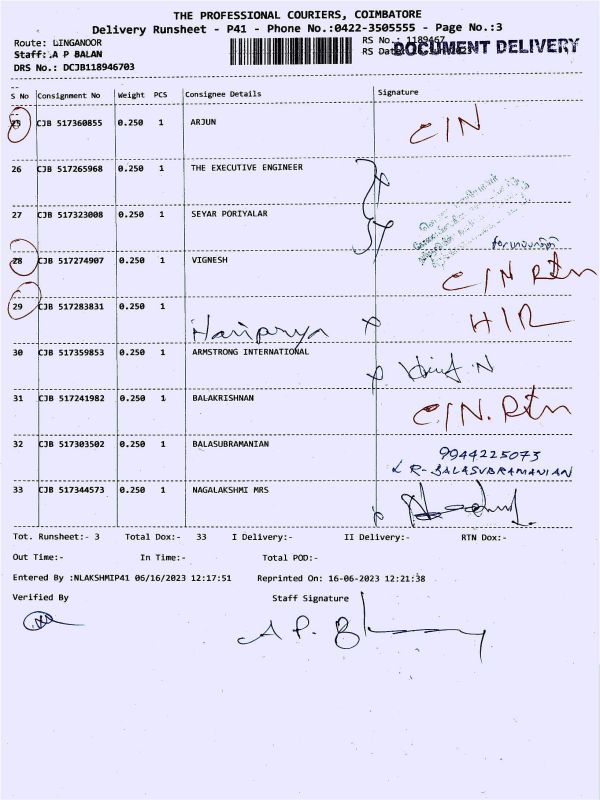 THE PROFESSIONAL COURIERS, COIMBATORE
Delivery Runsheet - P41 - Phone No.:0422-3505555 - Page No.:3
Route: LINGANOOR RS No.: 1189467
Staff:.A P BALAN RS Dat DOCUMENT DELIVERY
DRS No.: DCJB118946703
S No Consignment No Weight PCS Consignee Details Signature
25 CJB 517360855 0.250 1 ARJUN C/N
26 CJB 517265968 0.250 1 THE EXECUTIVE ENGINEER
27 CJB 517323008 0.250 1 SEYAR PORIYALAR
28 CJB 517274907 0.250 1 VIGNESH C/N Rtn
29 CJB 517283831 0.250 1 Haripriya H/R
30 CJB 517359853 0.250 1 ARMSTRONG INTERNATIONAL
31 CJB 517241982 0.250 1 BALAKRISHNAN C/N. Rtn
32 CJB 517303502 0.250 1 BALASUBRAMANIAN 9944225073
R-BALASUBRAMANIAN
33 CJB 517344573 0.250 1 NAGALAKSHMI MRS
Tot. Runsheet:- 3 Total Dox:- 33 I Delivery:- II Delivery:- RTN Dox:-
Out Time:- In Time:- Total POD:-
Entered By :NLAKSHMIP41 06/16/2023 12:17:51 Reprinted On: 16-06-2023 12:21:38
Verified By Staff Signature
A P. B